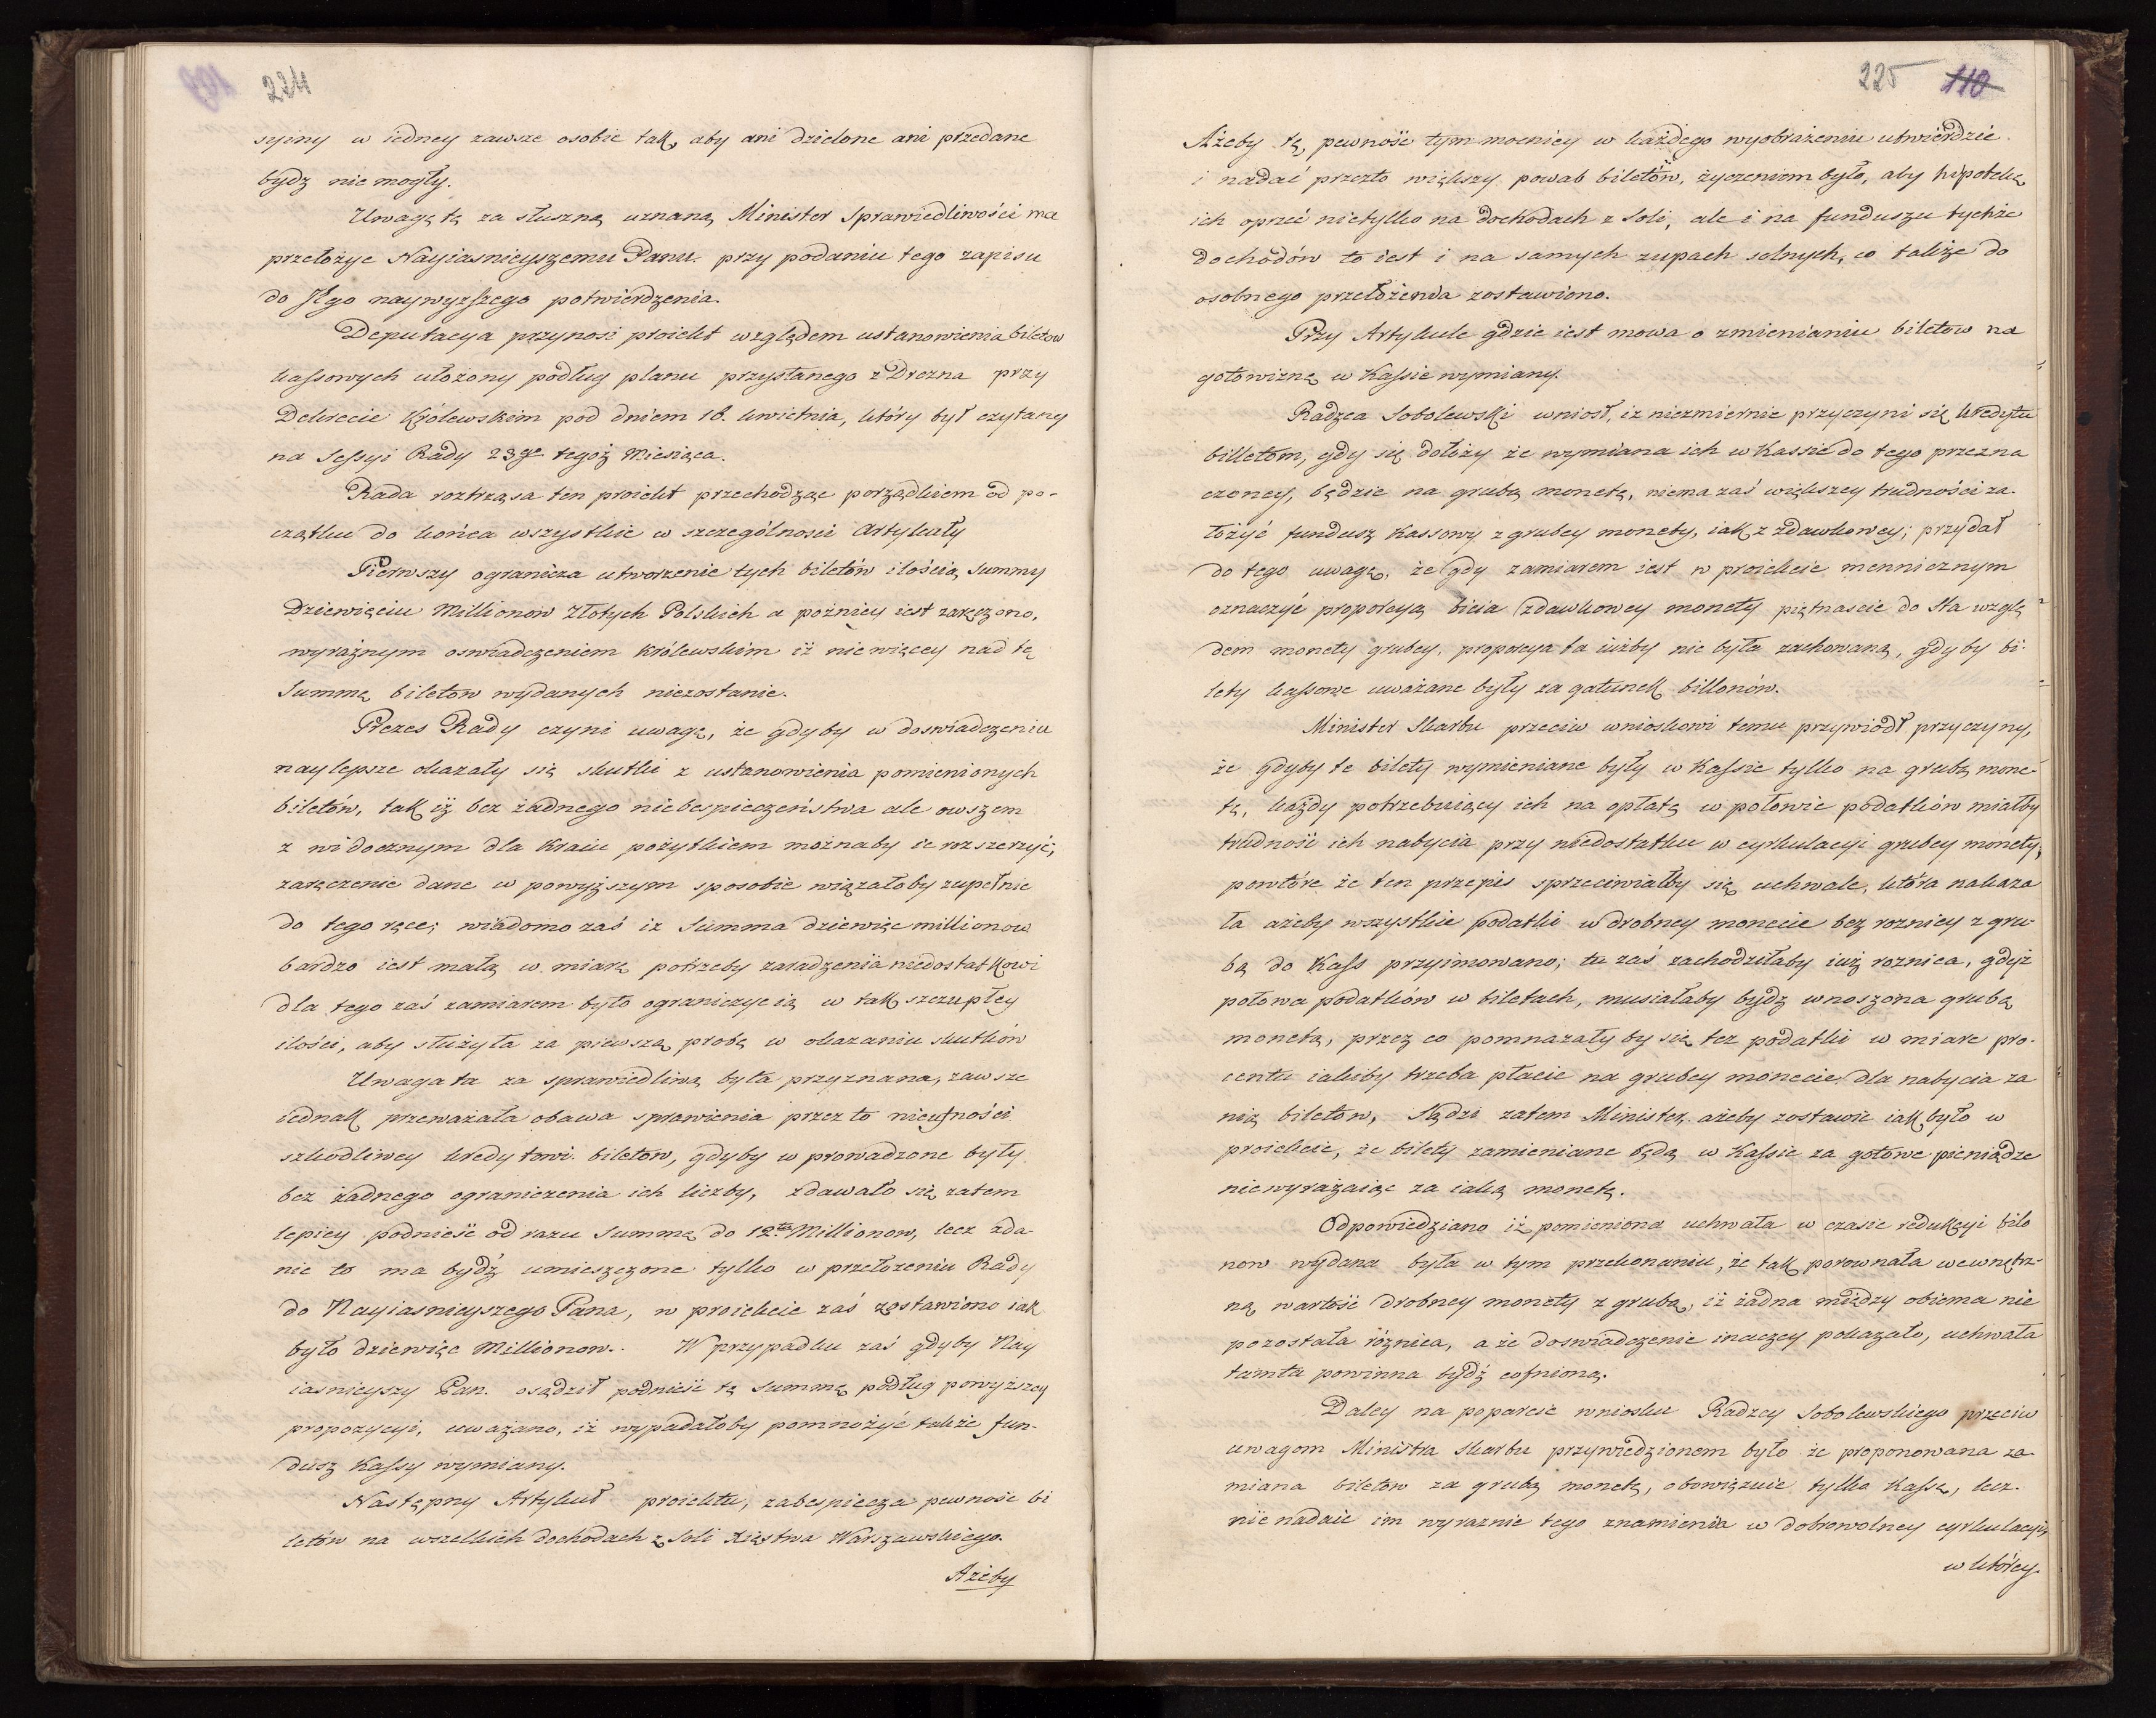 224
syiny w iedney zawsze osobie tak, aby ani dzielone ani przedane
bydz nie mogły.
Uwagę tę za słuszną uznaną, Minister Sprawiedliwości ma
przełożyc Nayiasnieyszemu Panu przy podaniu tego zapisu
do Jego naywyższego potwierdzenia.
Deputacya przynosi proiekt względem ustanowienia biletow
kassowych ułożony podług planu przysłanego z Drezna przy
Dekrecie Królewskim pod dniem 18. kwietnia, który był czytany
na Sessyi Rady 23go tegoż Miesiąca.
Rada roztrząsa ten proiekt przechodząc porządkiem od po-
czątku do końca wszystkie w szczególnosci Artykuły
Pierwszy ogranicza utworzenie tych biletów ilością Summy
Dziewięciu Millionow Złotych Polskich a pożniey iest zaręczono,
wyraźnym oswiadczeniem Królewskim iż niewięcey nad tę
Summę biletow wydanych niezostanie.
Prezes Rady czyni uwagę, że gdyby w doswiadczeniu
naylepsze okazały się skutki z ustanowienia pomienionych
biletów, tak iż bez żadnego niebespieczeństwa ale owszem
z widocznym dla Kraiu pożytkiem możnaby ie rozszerzyć,
zaręczenie dane w powyższym sposobie wiązałoby zupełnie
do tego ręce; wiadomo zaś iz Summa dziewięc millionow
bardzo iest małą w miarę potrzeby zaradzenia niedostatkowi
dla tego zaś zamiarem było ograniczyc ią w tak szczupłey
ilości, aby służyła za pierwszą probę w okazaniu skutków
Uwaga ta za sprawiedliwą była przyznana, zawsze
iednak przeważała obawa sprawienia przez to nieufności
szkodliwey kredytowi biletow, gdyby wprowadzone były
bez żadnego ograniczenia ich liczby, zdawało się zatem
lepiey podnieść od razu Summę do 12tu Millionow, lecz zda-
nie to ma bydź umieszczone tylko w przełożeniu Rady
do Nayiasnieyszego Pana, w proiekcie zaś zostawiono iak
było dziewięc Millionow. W przypadku zaś gdyby Nay
iasnieyszy Pan osądził podnieść tę Summę podług powyższey
propozycyi, uważano, iż wypadałoby pomnożyć także fun-
dusz Kassy wymiany.
Następny Artykuł proiektu, zabespiecza pewnośc bi
letów na wszelkich dochodach z Soli Xięstwa Warszawskiego.
Ażeby
225 110
Ażeby tę pewność tym mocniey w każdego wyobrażeniu utwierdzic
i nadać przezto większy powab biletów, życzeniem było, aby hipotekę
ich oprzeć nietylko na dochodach z Soli, ale i na funduszu tychże
dochodów to iest i na samych zupach solnych, co także do
osobnego przełożenia zostawiono.
Przy Artykule gdzie iest mowa o zmienianiu biletow na
gotowiznę w Kassie wymiany.
Radzca Sobolewski wniosł, iz niezmiernie przyczyni się kredytu
billetom, gdy się dołoży że wymiana ich w Kassie do tego przezna
czoney, będzie na grubą monetę, niema zaś większey trudności za-
łożyć fundusz Kassowy z grubey monety, iak z zdawkowey; przydał
do tego uwagę, że gdy zamiarem iest w proiekcie menniczny​m
oznaczyć proporcyą bicia zdawkowey monety piętnascie do Sta wzglę
dem monety grubey, proporcya ta iużby nie była zachowaną, gdyby bi-
lety kassowe uważane były za gatunek billonów.
Minister Skarbu przeciw wnioskowi temu przywiodł przyczyny,
że gdyby te bilety wymieniane były w Kassie tylko na grubą mone-
tę, każdy potrzebuiący ich na opłatę w połowie podatków miałby
trudność ich nabycia przy niedostatku w cyrkulacyi grubey monety,
powtóre że ten przepis sprzeciwiałby się uchwale, która nakaza
ła ażeby wszystkie podatki w drobney monecie bez roznicy z gru-
bą do Kass przyimowano; tu zaś zachodziłaby iuż roznica, gdyż
połowa podatków w biletach, musiałaby bydz wnoszona grubą
monetą, przez co pomnazałyby się tez podatki w miare pro-
centu iakiby trzeba płacic na grubey monecie dla nabycia za
nią biletow, Sądzi zatem Minister ażeby zostawic iak było w
proiekcie, że bilety zamieniane będą w Kassie za gotowe pieniądze
niewyrażaiąc za iaką monetę.
Odpowiedziano iż pomieniona uchwała w czasie redukcyi bilo
now wydana była w tym przekonaniu, że tak porownała wewnętrz-
ną wartość drobney monety z grubą, iż żadna między obiema nie
pozostała różnica, a że doswiadczenie inaczey pokazało, uchwała
tamta powinna bydź cofnioną.
Daley na poparcie wniosku Radzcy Sobolewskiego przeciw
uwagom Ministra Skarbu przywiedzionem było że proponowana za-
miana biletow za grubą monetę, obowiązuie tylko Kassę, lecz
nie nadaie im wyraznie tego znamienia w dobrowolney cyrkulacyi,
w którey